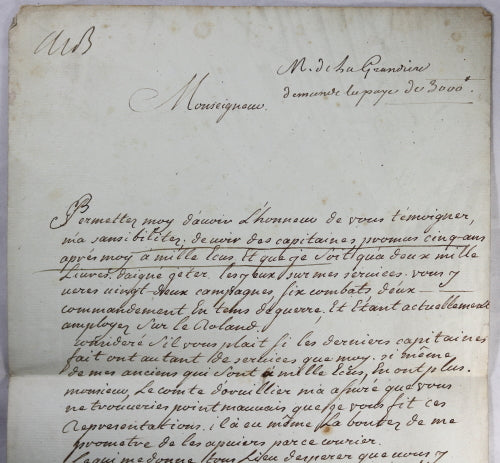 M. de La Grandiere
demande la paye de 3000#.
Monseigneur
Permettez moy d'avoir L'honneur de vous témoigner,
ma sansibilitez, de voir des capitaines promus cinq ans
après moy a mille Ecus, Et que je soit qu'a deux mille
Livres. daigné geter les yeux sur mes services. vous y
veres vingt deux campagnes six combats deux
commandement En tems de guerre, Et Etant actuellement
amployez sur Le Roland.
Conideré s'il vous plait si les derniers capitaines
fait ont autant de services que moy. si même
de mes anciens qui sont a mille Ecus, en ont plus.
monsieur, Le comte d'orvillier m'a asuré que vous
ne trouveries point mauvais que je vous fit ces
Representations. il a eu même La bontez de me
prometre de les apuier par ce courier.
Ce qui me donne tous Lieu d'esperer que vous y